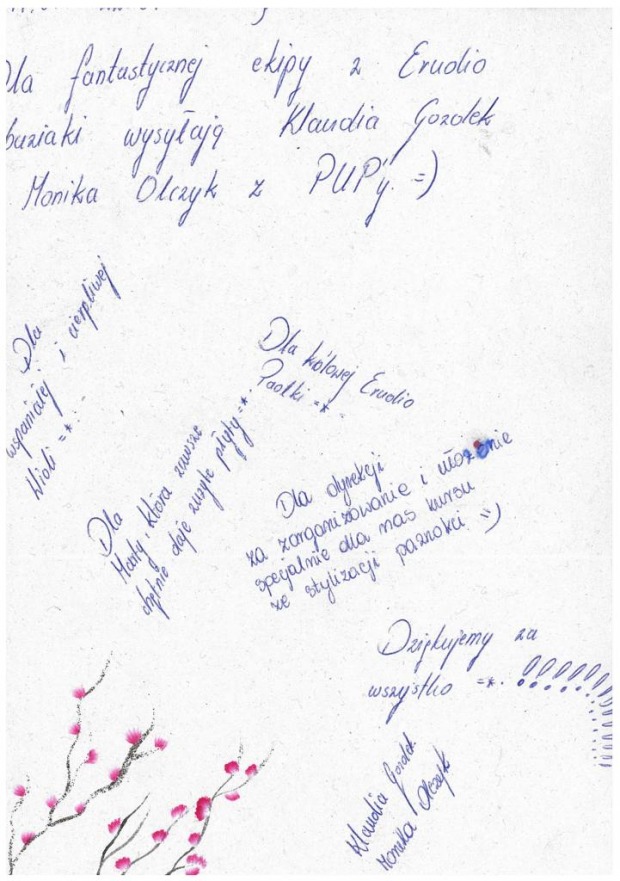 Dla fantastycznej ekipy z Erudio
buziaki wysyłają Klaudia Gozdek
Monika Olczyk z PUP'y =)
Dla
wspaniałej i cierpliwej
Wioli =*.
Dla kólowej Erudio
Paolki =*
Dla
Marty, która zawsze
chętnie daje zużyte płyty =*.
Dla dyrekcji
za zorganizowanie i ułożenie
specjalnie dla nas kursu
ze stylizacji paznokci =)
Dziękujemy za
wszystko =*.
Klaudia Gozdek
Monika Olczyk